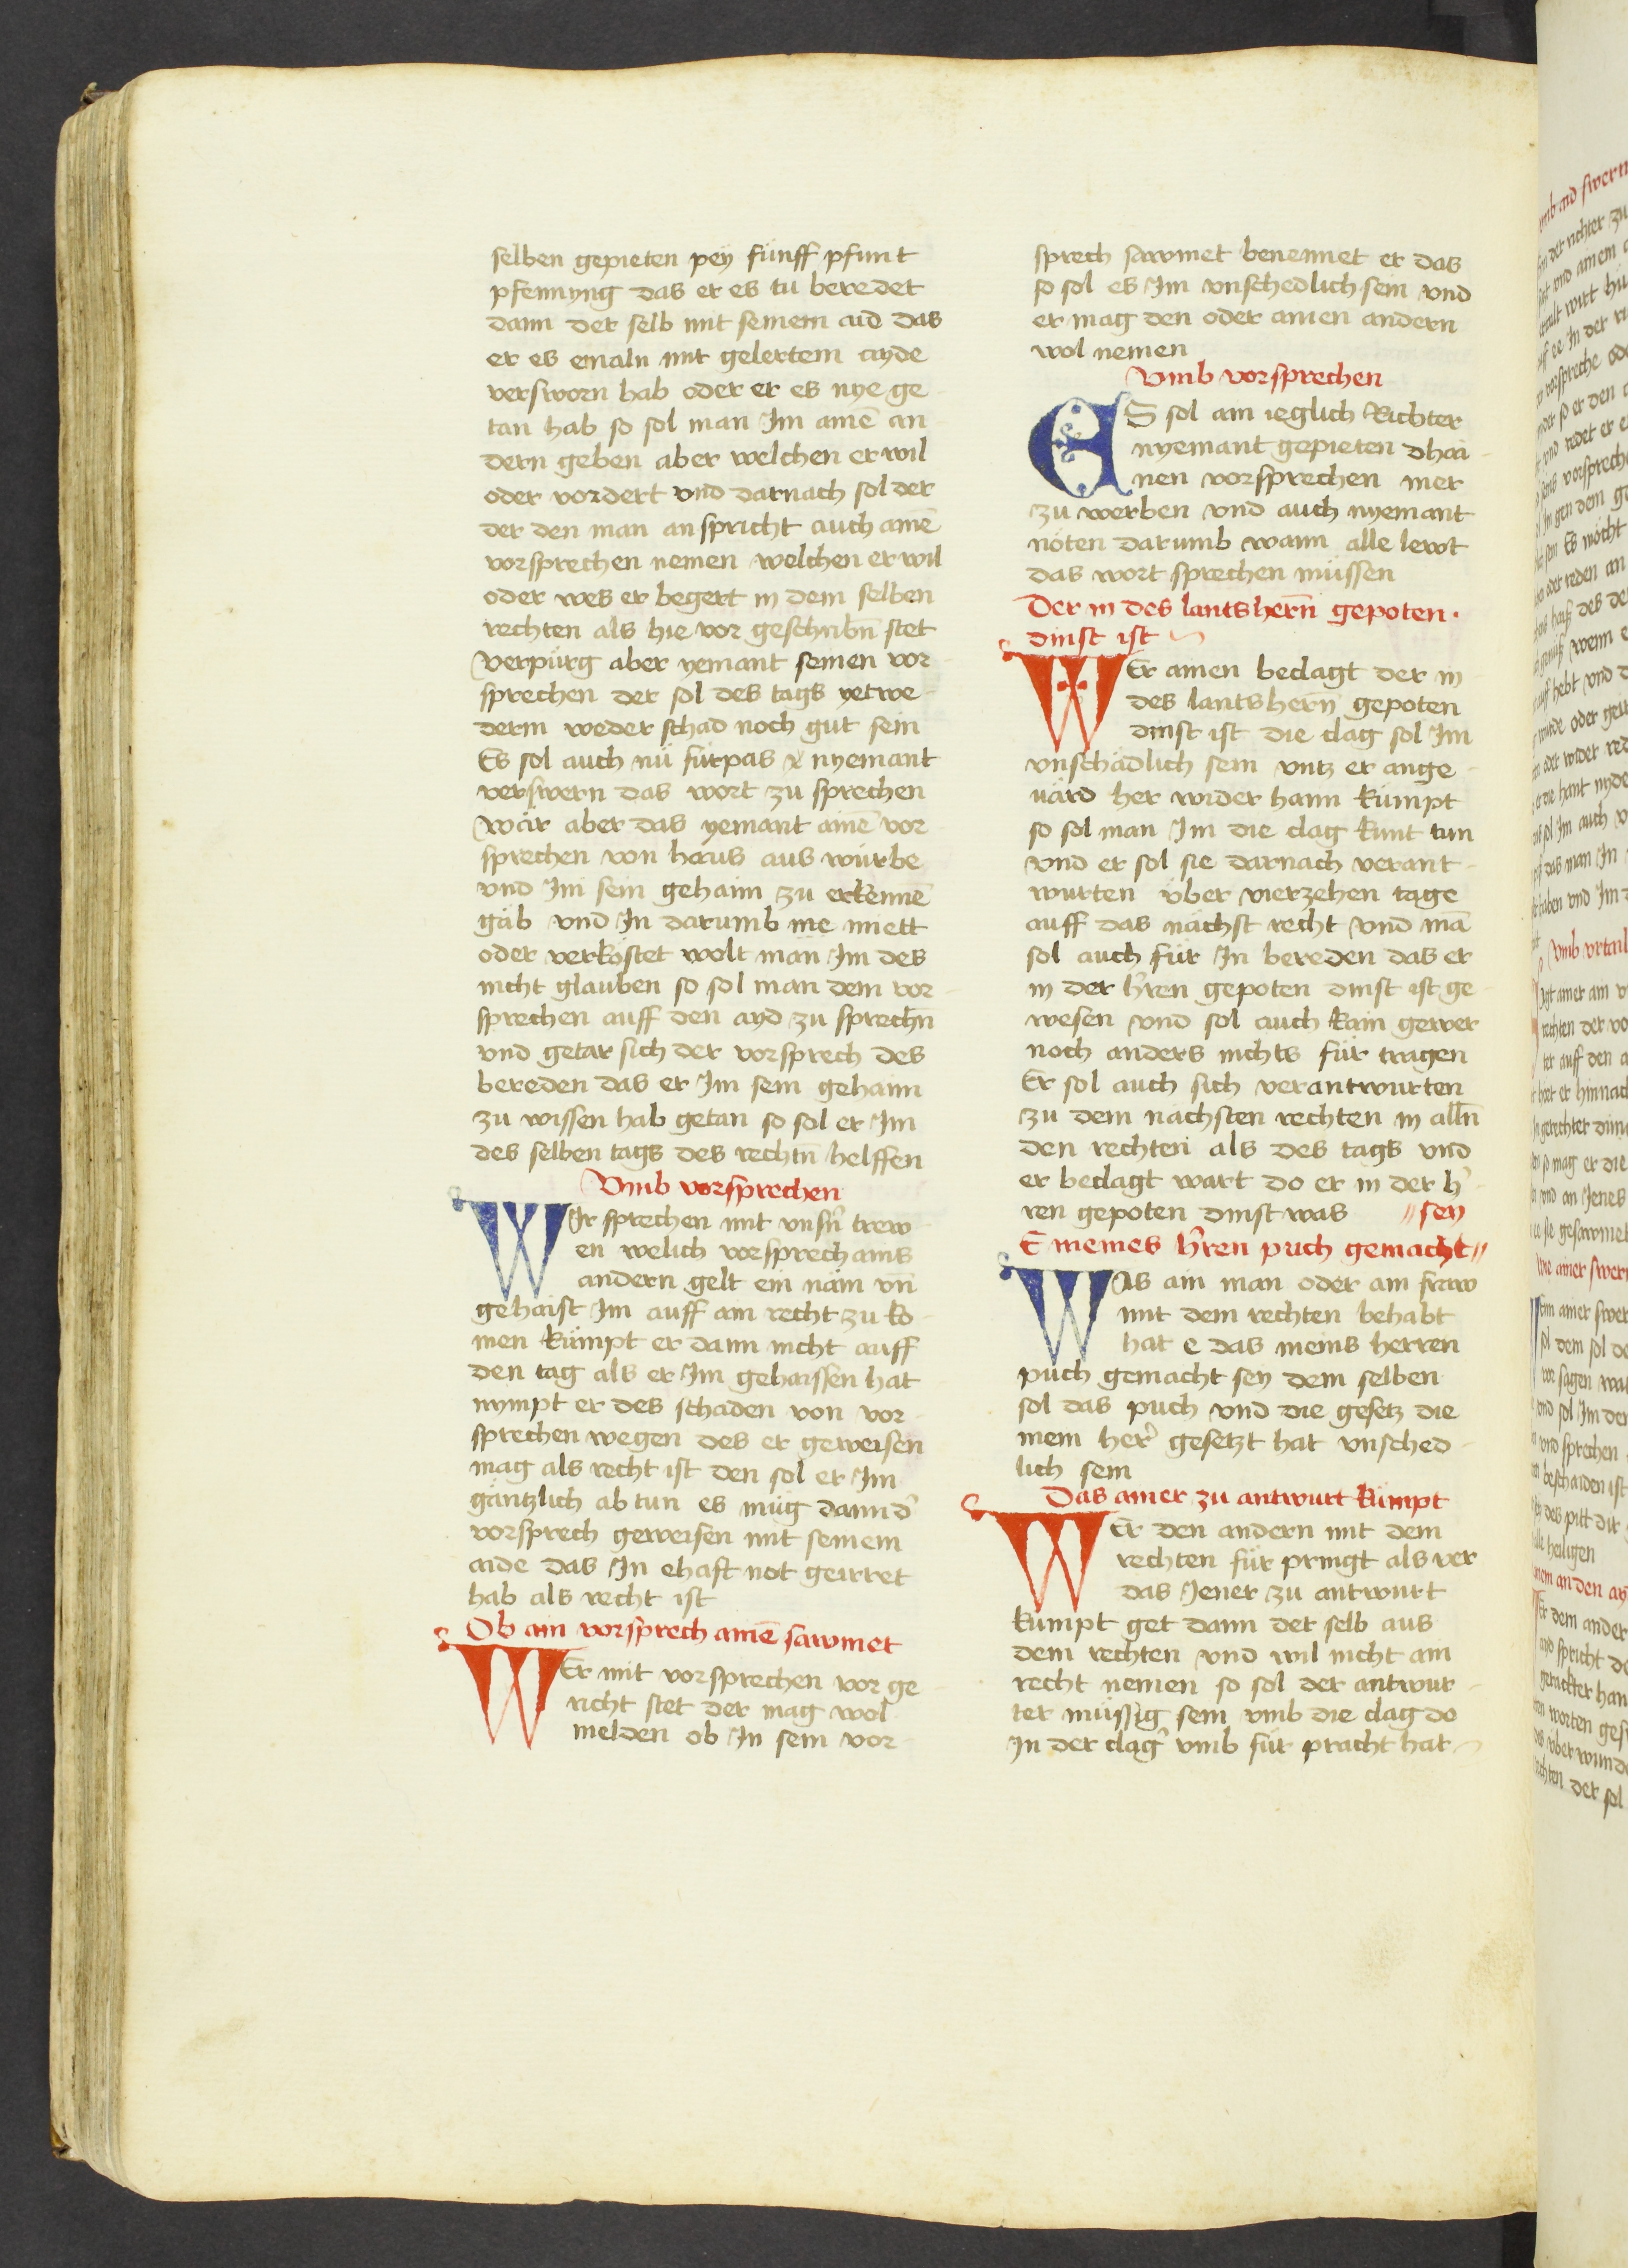 selben gepieten pey fünff pfunt
pfennyng das er es tu beredet
dann der selb mit seinem aid das
er es emaln mit gelertem ayde
versworn hab oder er es nye ge
tan hab so sol man Im ainē an
dern geben aber welchen er wil
oder vordert vnd darnach sol der
der den man anspricht auch ainē
vorsprechen nemen welchen er wil
oder wes er begert in dem selben
rechten als hie vor geschribn̄ stet
Verpürg aber yemant seinen vor
sprechen der sol des tags yetwe
derm weder schad noch gut sein
Es sol auch nü fürpas nyemant
verswern das wort zu sprechen
Wär aber das yemant ainē vor
sprechen von haus aus würbe
vnd Im sein gehaim zu erkennē
gäb vnd In darumb nie miett
oder verkostet wolt man Im des
nicht glauben so sol man dem vor
sprechen auff den ayd zu sprechn̄
vnd getar sich der vorsprech des
bereden das er Im sein gehaim
zu wissen hab getan so sol er Im
des selben tags des rechtn̄ helffen
Vmb vorsprechen
WIr sprechen mit vnsn̄ trew
en welich vorsprech ains
andern gelt ein näm vn̄
gehaist Im auff ain recht zu ko
men kümpt er dann nicht auff
den tag als er Im gehaissen hat
nympt er des schaden von vor
sprechen wegen des er geweisen
mag als recht ist den sol er Im
gäntzlich ab tun es müg dann d'
vorsprech geweisen mit seinem
aide das In ehaft not geirret
hab als recht ist
Ob ain vorsprech ainē sawmet
WEr mit vorsprechen vor ge
richt stet der mag wol
melden ob In sein vor
sprech sawmet benennet er das
so sol es Im vnschedlich sein vnd
er mag den oder ainen andern
wol nemen
Vmb vorsprechen
ES sol ain ieglich Richter
nyemant gepieten dhai
nen vorsprechen mer
zu werben vnd auch nyemant
nöten darumb wann alle lewt
das wort sprechen müssen
Der in des lantshern̄ gepoten
dinst ist
WEr ainen beclagt der in
des lantshern̄ gepoten
dinst ist die clag sol Im
vnschädlich sein vntz er ange
uärd her wider haim kümpt
so sol man Im die clag kunt tun
vnd er sol sie darnach verant
wurten über vierzehen tage
auff das nächst recht vnd mā
sol auch für In bereden das er
in der h'ren gepoten dinst ist ge
wesen vnd sol auch kain gewer
noch anders nichts für tragen
Er sol auch sich verantwurten
zu dem nächsten rechten in alln̄
den rechten als des tags vnd
er beclagt wart do er in der h'
ren gepoten dinst was
E meines h'ren puch gemacht // // sey
WAs ain man oder ain fraw
mit dem rechten behabt
hat e das meins herren
puch gemacht sey dem selben
sol das puch vnd die gesetz die
mein her' gesetzt hat vnsched
lich sein
Das ainer zu antwurt kümpt
WEr den andern mit dem
rechten für pringt als ver
das Jener zu antwurt
kumpt get dann der selb aus
dem rechten vnd wil nicht ain
recht nemen so sol der antwur
ter müssig sein vmb die clag do
In der clag' vmb für pracht hat